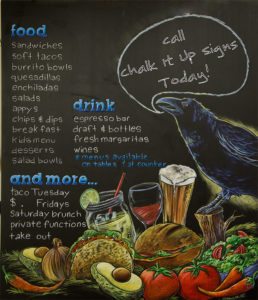 food
sandwiches
soft tacos
burrito bowls
quesadillas
enchiladas
salads
appys
chips & dips
breakfast
kids menu
desserts
salad bowls
drink
espresso bar
draft & bottles
fresh margaritas
wines
*menus available
on tables 1st counter
and more...
Taco Tuesday
$ . Fridays
Saturday brunch
private functions
take out
call
Chalk It Up Signs
Today!